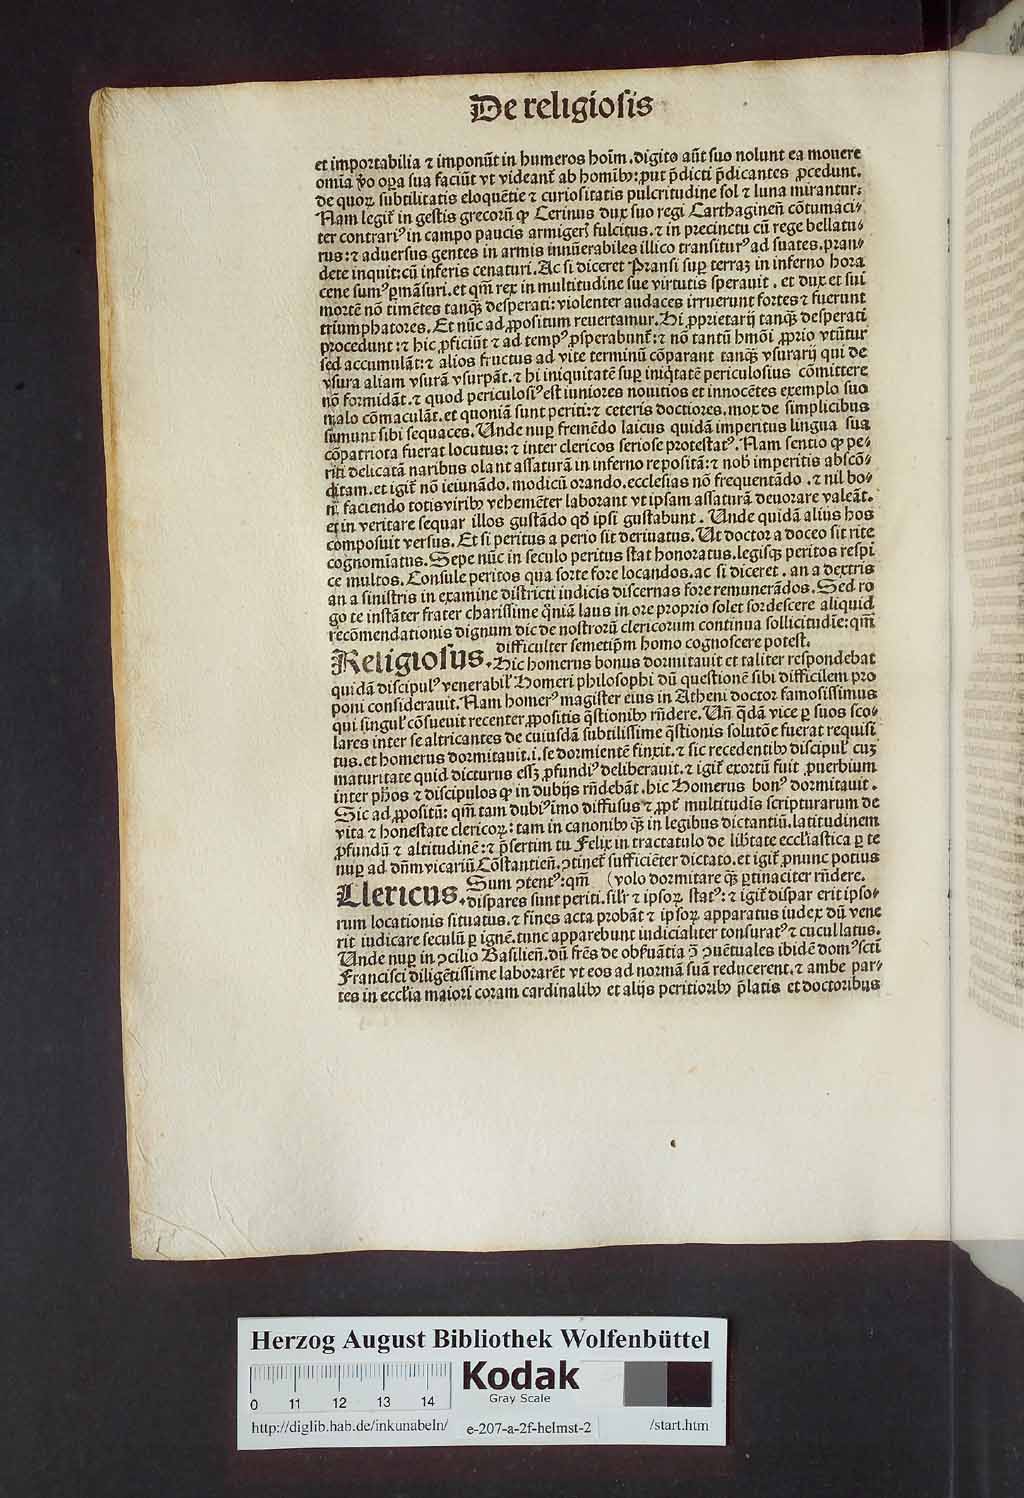 De religiosis
et importabilia ⁊ imponũt in humeros hoĩm. digito aũt suo nolunt ea mouere
omĩa ꝟo oꝑa sua faciũt vt videant᷑ ab homĩbꝰ: ꝓut p̃dicti p̃dicantes ꝓcedunt.
de quoꝝ subtilitatis eloquẽtie ⁊ curiositatis pulcritudine sol ⁊ luna mirantur:
Nam legit᷑ in gestis grecorũ ꝙ Cerinus dux suo regi Carthagineñ cõtumaci⸗
ter contrariꝰ in campo paucis armigerꝭ fulcitus. ⁊ in precinctu cũ rege bellatu⸗
rus: ⁊ aduersus gentes in armis innũerabiles illico transiturꝰ ad suates. pran⸗
dete inquit: cũ inferis cenaturi. Ac si diceret Pransi suꝑ terraꝫ in inferno hora
cene sumꝰ ꝑmãsuri. et qm̃ rex in multitudine sue virtutis sperauit . et dux et sui
mortẽ nõ timẽtes tanq̃ꝫ desperati: violenter audaces irruerunt fortes ⁊ fuerunt
triumphatores. Et nũc ad ꝓpositum reuertamur. Hi ꝓprietarij tanq̃ꝫ desperati
procedunt: ⁊ hic ꝓficiũt ⁊ ad tempꝰ ꝓsperabunt᷑: ⁊ nõ tantũ hmõi ꝓprio vtũtur
sed accumulãt: ⁊ alios fructus ad vite terminũ cõparant tanq̃ꝫ vsurarij qui de
vsura aliam vsurã vsurpãt. ⁊ hi iniquitatẽ suꝑ iniq̃tatẽ periculosius cõmittere
nõ formidãt. ⁊ quod periculosiꝰ est iuniores nouitios et innocẽtes exemplo suo
malo cõmaculãt. et quoniã sunt periti: ⁊ ceteris doctiores. mox de simplicibus
sumunt sibi sequaces. Unde nuꝑ fremẽdo laicus quidã imperitus lingua sua
cõpatriota fuerat locutus: ⁊ inter clericos seriose protestatꝰ. Nam sentio ꝙ pe⸗
riti delicatã naribus olant assaturã in inferno repositã: ⁊ nobꝭ imperitis abscõ⸗
ditam. et igit᷑ nõ ieiunãdo. modicũ orando. ecclesias nõ frequentãdo . ⁊ nil bo⸗
ni faciendo totis viribꝰ vehemẽter laborant vt ipsam assaturã deuorare valeãt.
et in veritare sequar illos gustãdo qd̃ ipsi gustabunt . Unde quidã alius hos
composuit versus. Et si peritus a perio sit deriuatus. Ut doctor a doceo sit rite
cognomiatus. Sepe nũc in seculo peritus stat honoratus. legisq̃ꝫ peritos respi
ce multos. Consule peritos qua sorte fore locandos. ac si diceret . an a dextris
an a sinistris in examine districti iudicis discernas fore remunerãdos. Sed ro
go te instãter frater charissime q̃niã laus in ore proprio solet sordescere aliquid
recõmendationis dignum dic de nostrorũ clericorum continua sollicitudĩe: qm̃
difficulter semetip̃m homo cognoscere potest.
Religiosus. Hic homerus bonus dormitauit et taliter respondebat
quidã discipulꝰ venerabilꝭ Homeri philosophi dũ questionẽ sibi difficilem pro
poni considerauit. Nam homerꝰ magister eius in Atheni doctor famosissimus
qui singulꝭ cõsueuit recenter ꝓpositis q̃stionibꝰ rñdere. Uñ q̃dã vice ꝑ suos sco⸗
lares inter se altricantes de cuiusdã subtilissime q̃stionis solutõe fuerat requisi
tus. et homerus dormitauit. i. se dormientẽ finxit. ⁊ sic recedentibꝰ discipulꝭ cuꝫ
maturitate quid dicturus essꝫ ꝓfundiꝰ deliberauit. ⁊ igit᷑ exortũ fuit ꝓuerbium
inter ph̃os ⁊ discipulos ꝙ in dubijs rñdebãt. hic Homerus bonꝰ dormitauit .
Sic ad ꝓpositũ: qm̃ tam dubiꝰ imo diffusus ⁊ ꝓpt᷑ multitudĩs scripturarum de
vita ⁊ honestate clericoꝝ: tam in canonibꝰ q̃ꝫ in legibus dictantiũ. latitudinem
ꝓfundũ ⁊ altitudinẽ: ⁊ p̃sertim tu Felix in tractatulo de lib̃tate eccl̃iastica ꝑ te
nuꝑ ad dñm vicariũ Cõstantieñ. ꝯtinet᷑ sufficiẽter dictato. et igit᷑ ꝓnunc potius
Sum ꝯtentꝰ: qm̃ (volo dormitare q̃ꝫ ꝑtinaciter rñdere.
Clericus. dispares sunt periti. silꝭr ⁊ ipsoꝝ statꝰ: ⁊ igit᷑ dispar erit ipso⸗
rum locationis situatus. ⁊ fines acta probãt ⁊ ipsoꝝ apparatus iudex dũ vene
rit iudicare seculũ ꝑ ignẽ. tunc apparebunt iudicialiter tonsuratꝰ ⁊ cucullatus.
Unde nuꝑ in ꝯcilio Basilieñ. dũ fr̃es de obf̃uãtia ꝯ̃ ꝯuẽtuales ibidẽ domꝰ sctĩ
Francisci diligẽtissime laborarẽt vt eos ad normã suã reducerent. ⁊ ambe par⸗
tes in eccl̃ia maiori coram cardinalibꝰ et alijs peritioribꝰ p̃latis et doctoribus
Herzog August Bibliothek Wolfenbüttel
0 11 12 13 14
Kodak
Gray Scale
http://diglib.hab.de/inkunabeln/ e-207-a-2f-helmst-2 /start.htm